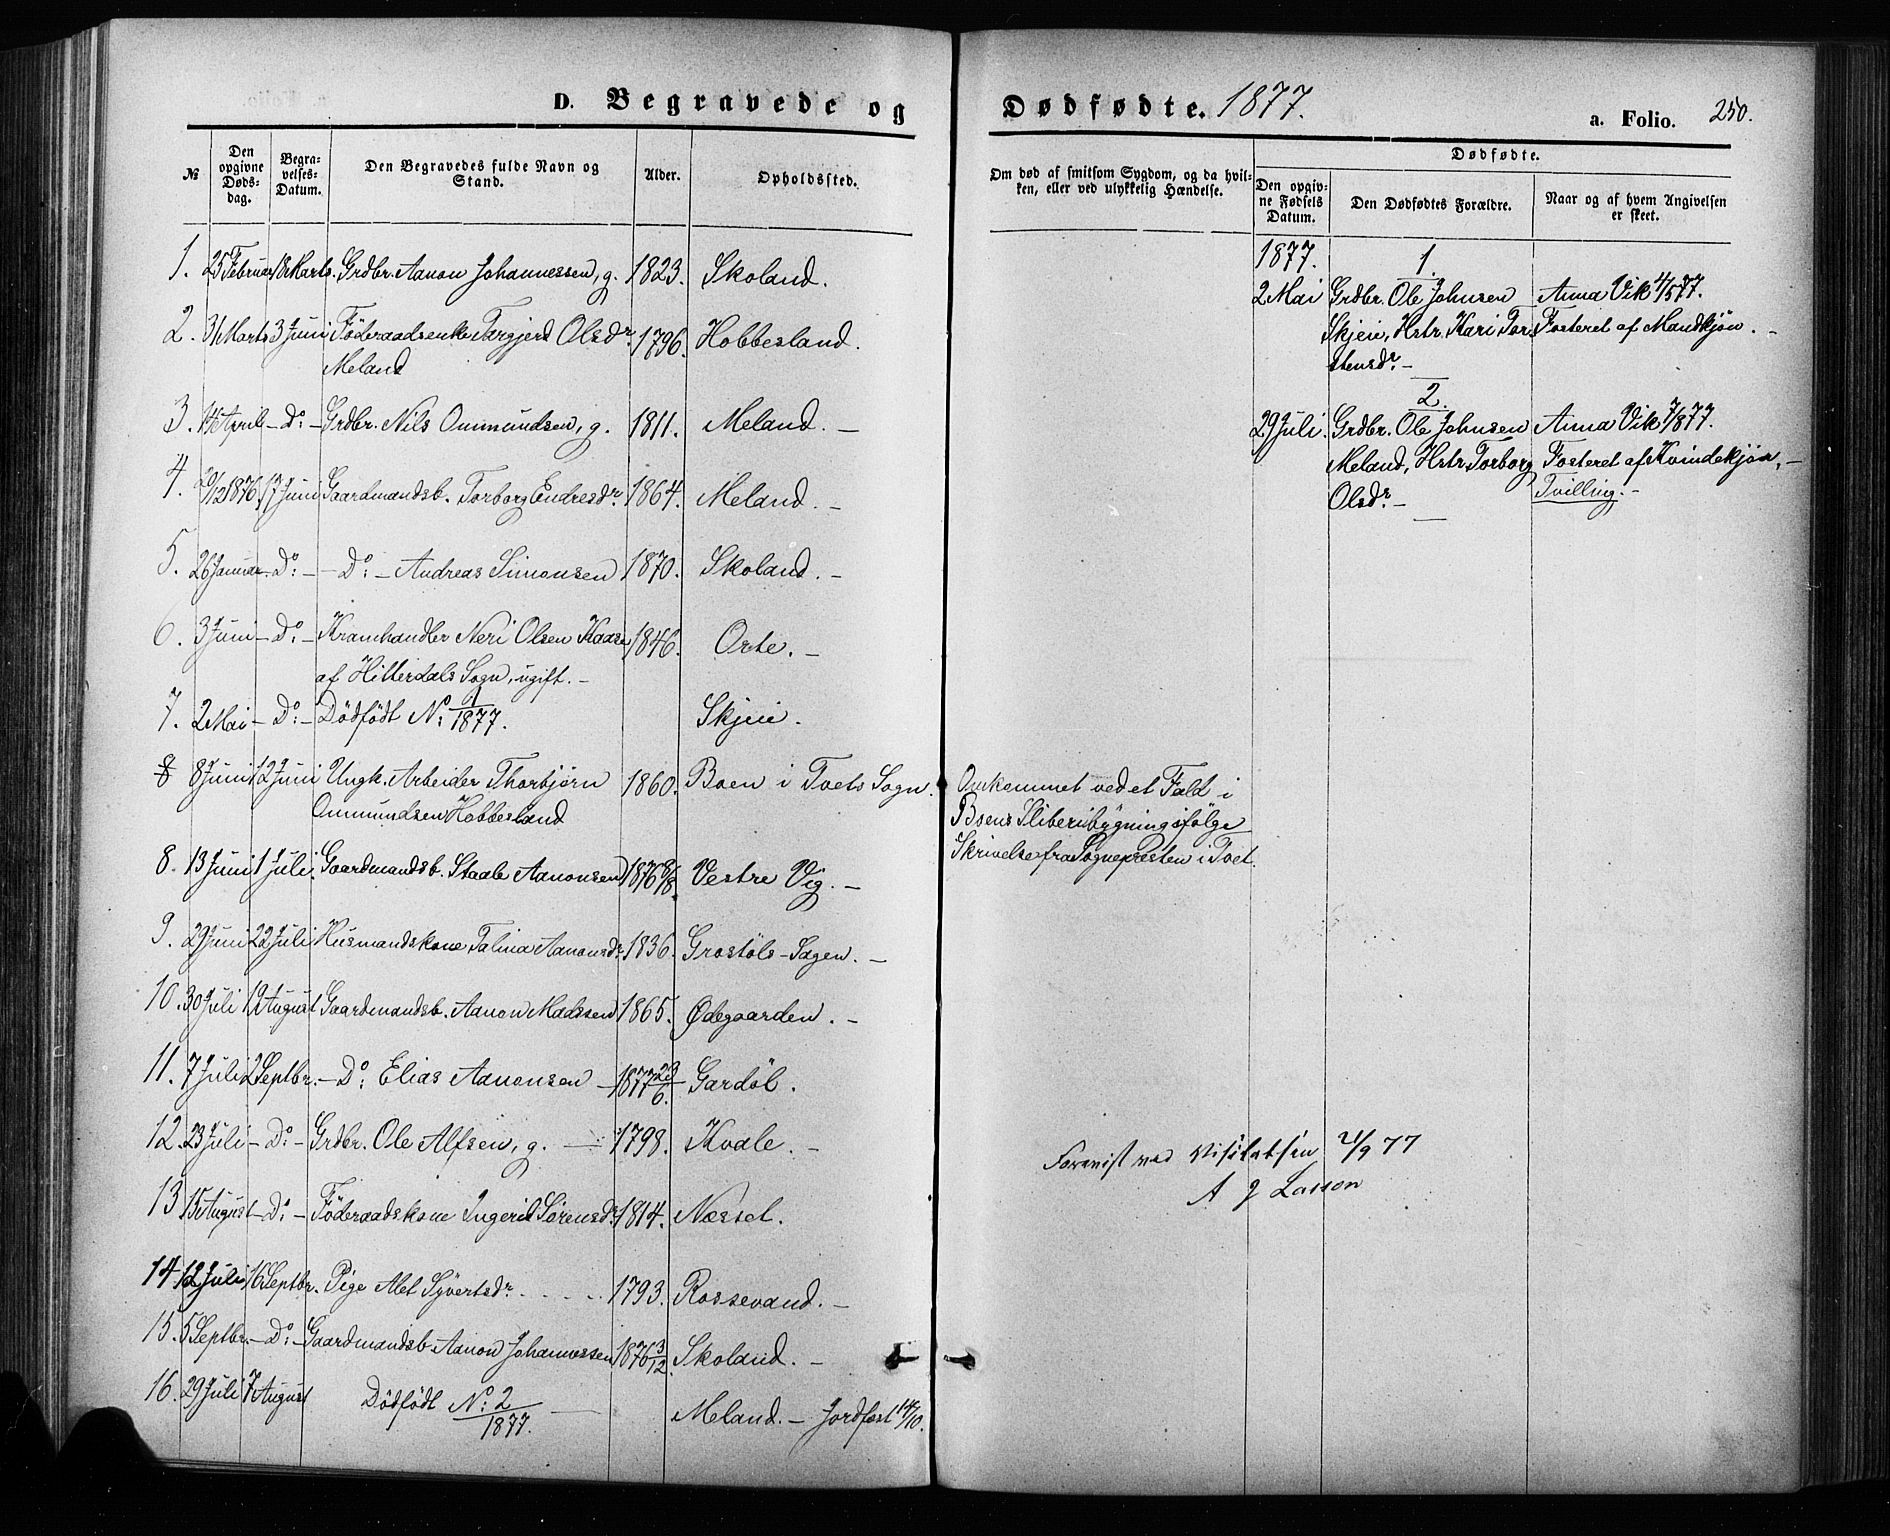 D. Begravede og Dødfødte. 1877. a. Folio. 250.
№
Den opgivne Døds-dag.
Begra-velses-Datum.
Den Begravedes fulde Navn og Stand.
Alder.
Opholdssted.
Om død af smitsom Sygdom, og da hvil-ken, eller ved ulykkelig Hændelse.
Dødfødte.
Den opgiv-ne Fødsels Datum.
Den Dødfødtes Forældre.
Naar og af hvem Angivelsen er skeet.
1. 25 Februar 18 Marts. Grdbr. Aanon Johannessen, g. 1823. Skoland.
2. 31 Marts 3 Juni Föderaadsenke Targjerd Olsdr 1796. Hobbesland.
Meland
3. 14 April - Do: - Grdbr. Nils Ommundsen, g. 1811. Meland. -
4. 20/12 1876. 17 Juni Gaardmandsb. Torborg Endresdr. 1864. Meland. -
5. 26 Januar - Do: - - Do: - Andreas Simonsen 1870. Skoland. -
6. 3 Juni - Do: - Kramhandler Neri Olsen Kaasa 1846. Orte. -
af Hitterdals Sogn, ugift. -
7. 2 Mai - Do: - Dödfödt No: 1/1877. Skjeie.
8 8 Juni 12 Juni Ungk. Arbeider Thorbjørn 1860. Boen i Tvets Sogn.
Ommundsen Hobbesland
8. 13 Juni 1 Juli. Gaardmandsb. Staale Aanonsen 1876 8/8. Vestre Vig. -
9. 29 Juni 22 Juli Husmandskone Talina Aanonsdr 1836. Grostöls-Sagen. -
10. 30 Juli 12 August Gaardmandsb. Aanon Madssen 1865. Ødegaarden. -
11. 7 Juli 2 Septbr. - Do: Elias Aanonsen - 1877 23/6. Gardöl.
12. 23 Juli - Do: - Grdbr. Ole Alfsen, g. 1798. Kvale. -
13 15 August - Do: - Föderaadskone Ingerid Sörensdr 1814. Næsset.
14 12 Juli 16 Septbr. Pige Alet Syvertsdr. 1793. Rossevand. -
15. 5 Septbr. - Do: - Gaardmandsb Aanon Johannessen 1876 3/12. Skoland. -
16. 29 Juli 7 August Dödfödt No: 2/1877. - Meland. - Jordfæst 14/10.
Omkommet ved et Fald i
Boens Sliberibygning ifölge
Skrivelse fra Sognepresten i Tvet.
1877. 1.
2 Mai Grdbr. Ole Johnsen Anna Vik 4/5 77.
Skjeie, Hstr. Kari Tor- Fosteret af Mandkjön. -
stensdr. -
2.
29 Juli. Grdbr. Ole Johnsen Anna Vik 7/8 77.
Meland, Hstr. Torborg Fosteret af Kvindekjön, -
Olsdr. - Tvilling. -
Forevist ved Visitatsen 21/9 77
A J Lasson